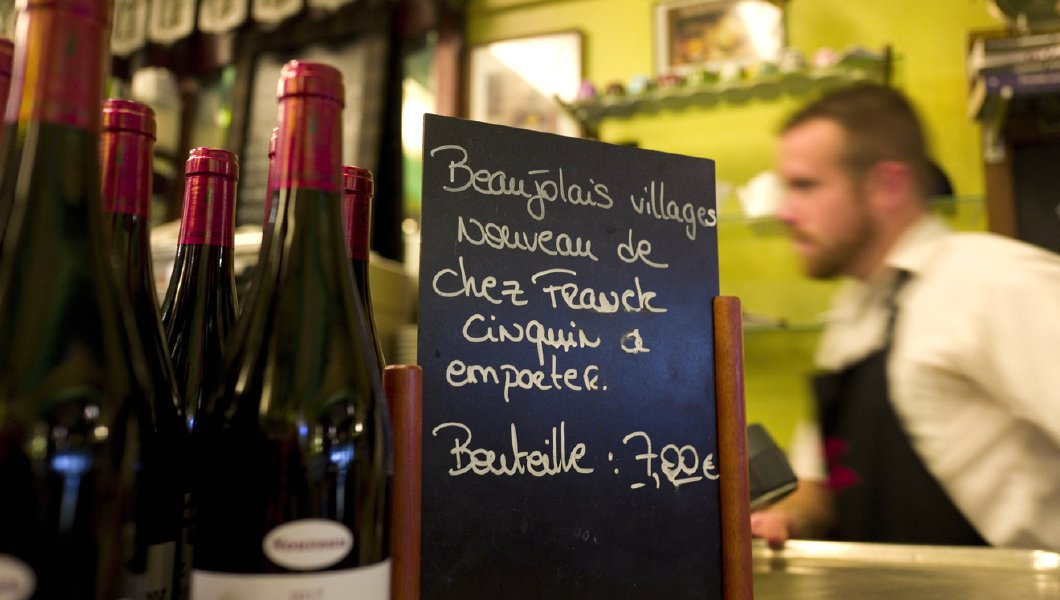 Beaujolais villages
Nouveau de
chez Franck
Cinquin a
emporter.
Bouteille : 7,00€
Nouveau
2017